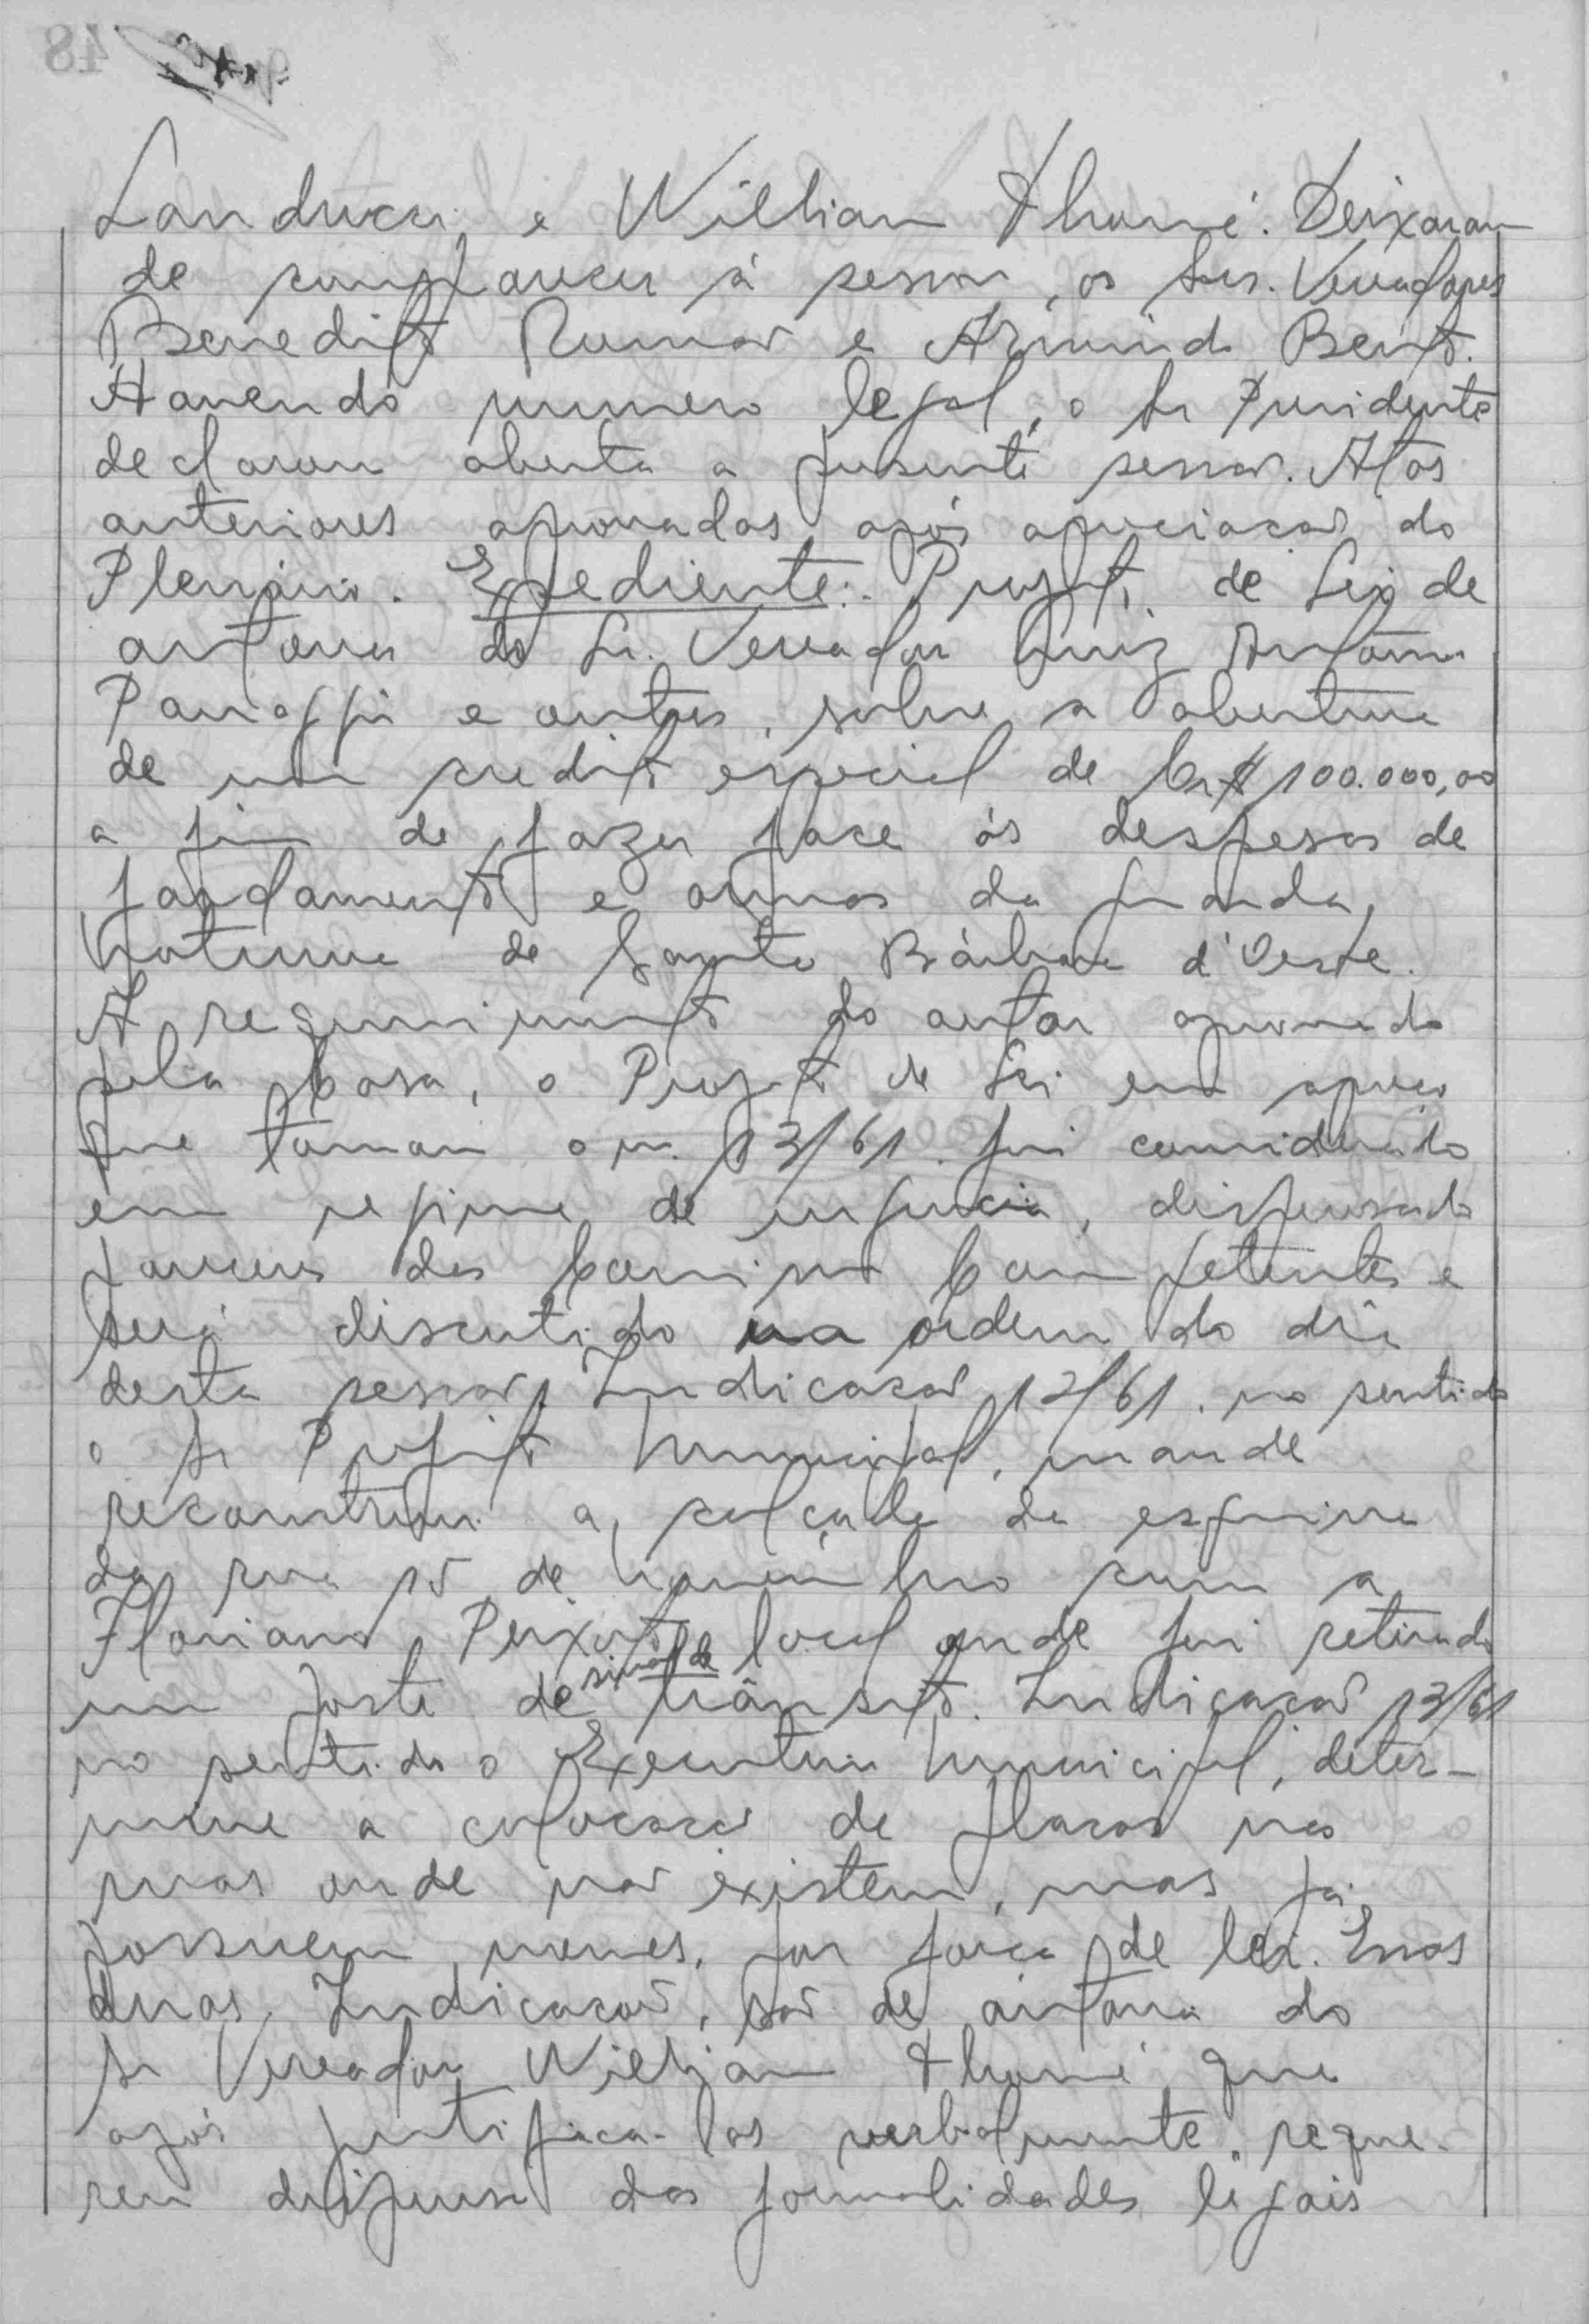 Landucci e Willian Thomé. Deixaram
de comparecer à sessão, os Srs. Vereadores
Benedito Romão e Armindo Bento.
Havendo numero legal, o Sr Presidente
declarou aberta a presente sessão. Atas
anteriores aprovadas após apreciação do
Plenário. Expediente: Projeto de Lei de
autoria do Sr. Vereador Luiz Antônio
Panaggio e outros, sobre a abertura
de um credito especial de Cr$ 100.000,00
a fim de fazer face ás despesas de
fardamento e armas da guarda
noturna de Santa Bárbara d'Oeste.
A requerimento do autor aprovado
pela Casa, o Projeto de Lei em apreço
que tomou o n. 13/61. foi considerado
em regime de urgencia, dispensado
pareceres das Comissões Competentes e
será discutido na ordem do dia
desta sessão. Indicação 12/61. no sentido
o Sr Prefeito Municipal, mande
reconstruir a calçada da esquina
da rua 15 de Novembro com a
Floriano Peixoto, local onde foi retirado
um poste de sinal de trânsito. Indicação 13/61
no sentido o Executivo Municipal, deter-
mine a colocação de placas nas
ruas onde não existem, mas já
possuem nomes, por força de lei. Essas
duas Indicação, são de autoria do
Sr Vereador Willian Thomé que
após justifica-las verbalmente, reque-
reu dispensa das formalidades legais